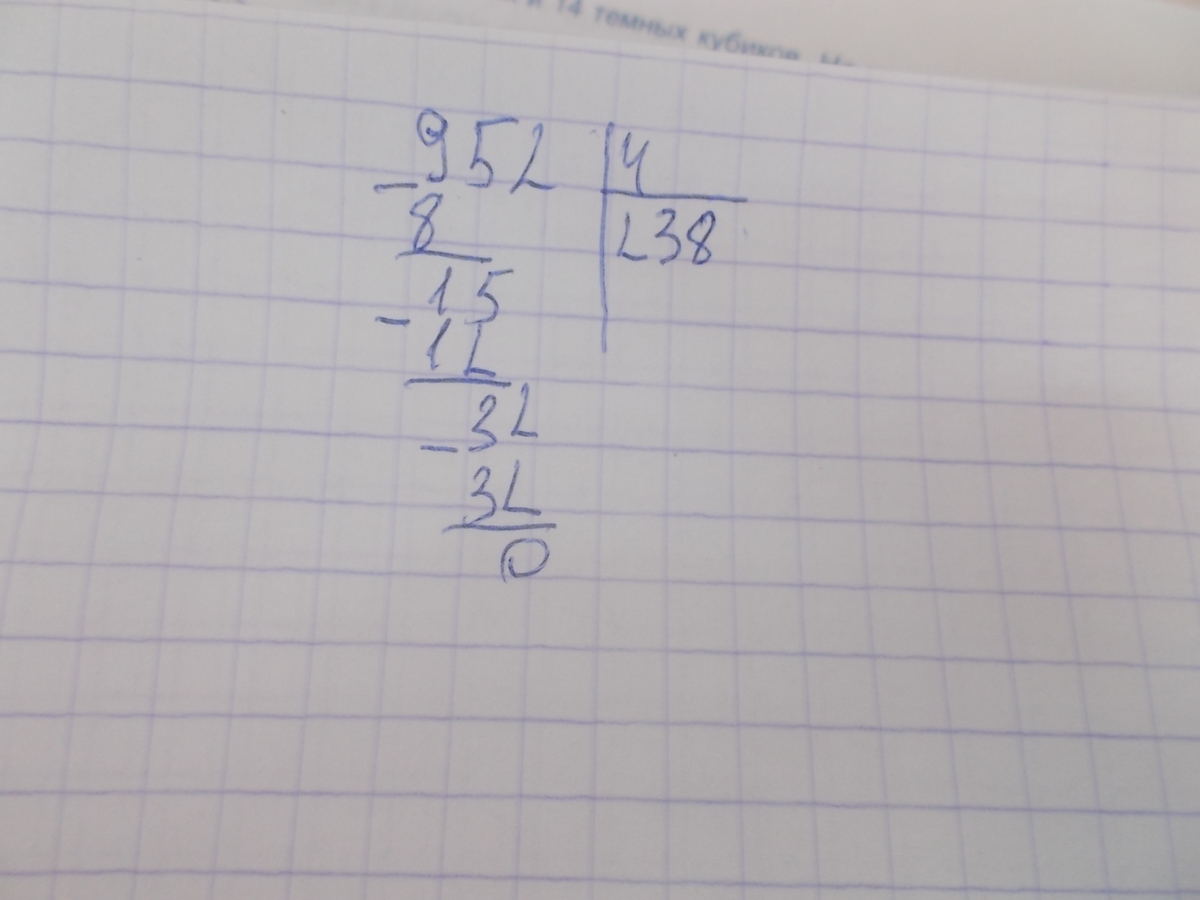 и 14 темных кубиков.
952 | 4
- 8 | 238
15
- 12
32
- 32
0